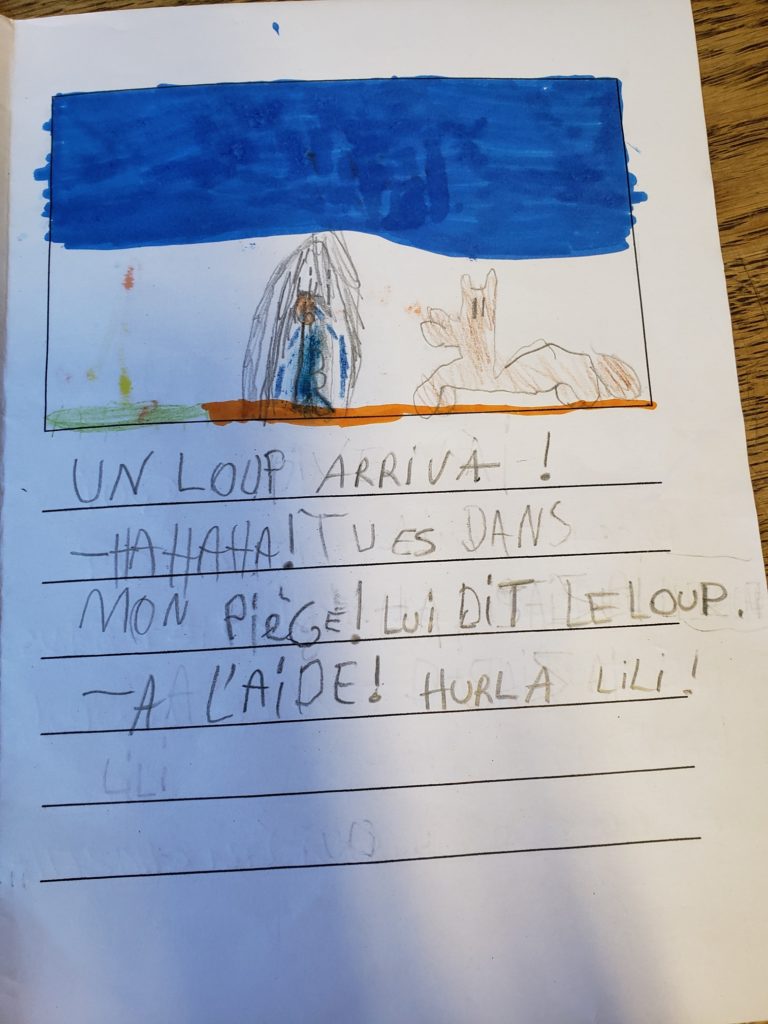 UN LOUP ARRIVA !
—HAHAHA! TU ES DANS
MON PIÈGE! LUI DIT LE LOUP.
—A L'AIDE! HURLA LILI!
LILI